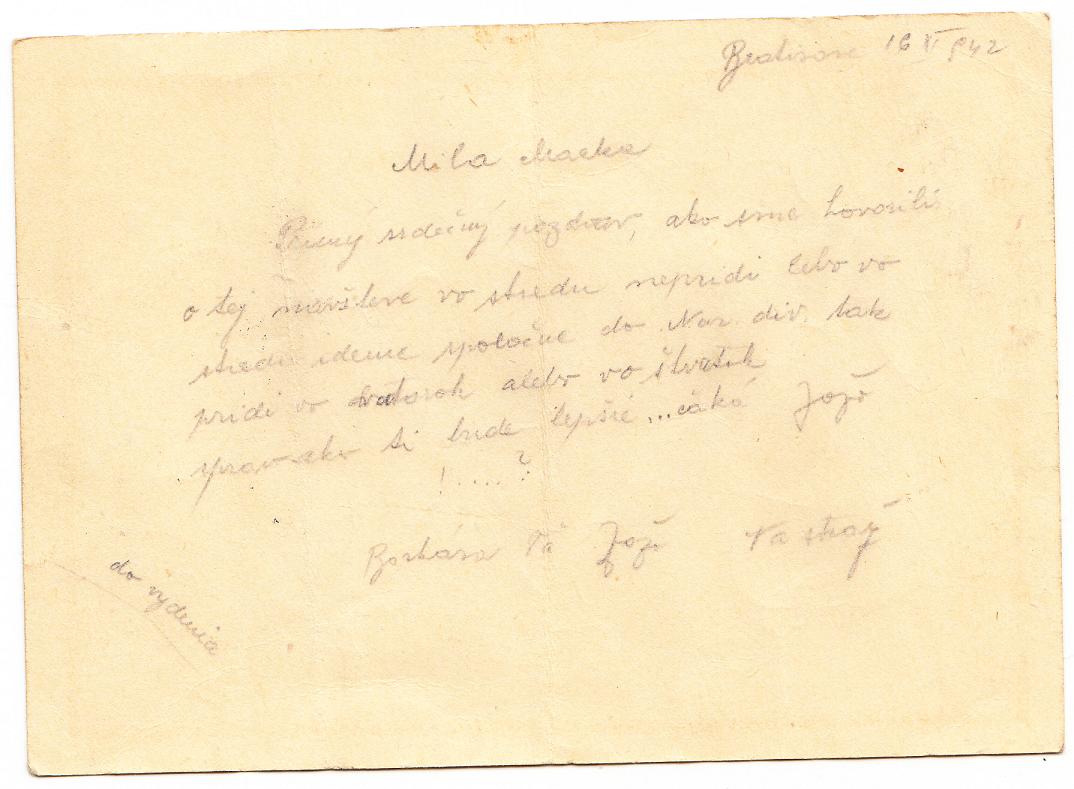 Bratislava 16 XI 942
Milá Macka
srdečný pozdrav, ako sme hovorili
o tej navšteve vo stredu nepridi lebo vo
stredu ideme spoločne do Nar. div. tak
pridi vo vtorok alebo vo štvrtok
sprav ako ti bude lepšie ...cáká Jožo
!....?
Bozkáva Ťa Jožo Na stráž
do vydenia